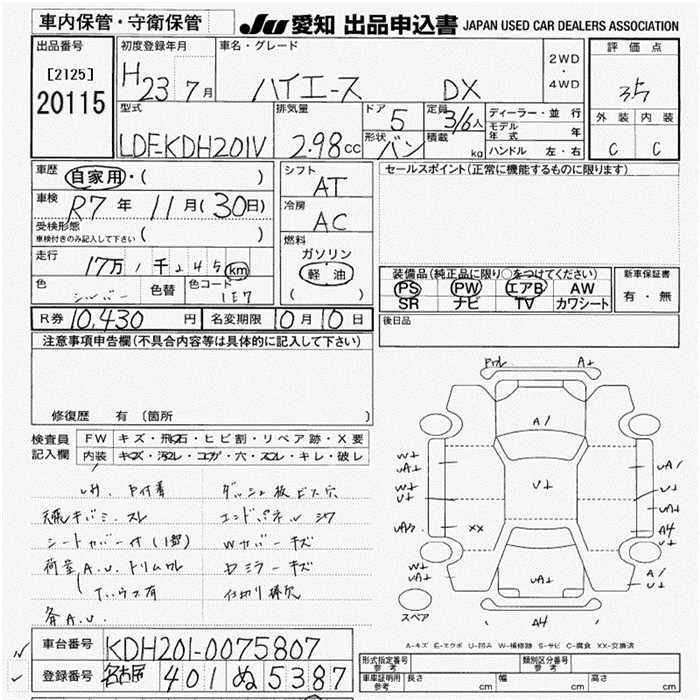 車内保管・守衛保管
JU 愛知 出品申込書 JAPAN USED CAR DEALERS ASSOCIATION
出品番号
[2125]
20115
初度登録年月
H 23 7 月
車名・グレード
ハイエース DX
2WD
・
4WD
評価点
3.5
外装 内装
C C
型式
LDF-KDH201V
排気量
2.98 cc
ドア
5
形状 バン
定員
3/6人
積載
kg
ディーラー・並行
モデル年式 年
ハンドル 左・右
車歴
自家用・( )
車検
R7 年 11月(30日)
受検形態
車検付きのみ記入して下さい ( )
走行
17万 1千 2 4 5 km
色
シルバー
色替
色コード
1E7
シフト
AT
冷房
AC
燃料
ガソリン
軽油
( )
セールスポイント(正常に機能するものに限ります)
装備品(純正品に限り○をつけてください)
PS PW エアB AW
SR ナビ TV カワシート
新車保証書
有・無
R券 10,430 円 名変期限 10月10日
後日品
注意事項申告欄(不具合内容等は具体的に記入して下さい)
修復歴 有 (箇所 )
検査員記入欄
FW キズ・飛石・ヒビ割・リペア跡・X要
内装 キズ・汚レ・コゲ・穴・スレ・キレ・破レ
ダッシュ板ビス穴
天張キバミ・スレ エンドパネルシワ
シートカバー付(1部) Wカバーキズ
荷室A.U.トリムワレ Dミラーキズ
仕切り棒欠
A1
U1
XX
UA1
A4
スペア
A-キズ E-エクボ U-凹み W-補修跡 S-サビ C-腐食 XX-交換済
車台番号 KDH201-0075807
登録番号 名古屋 401 ぬ 5387
型式指定番号 参考
類別区分番号 参考
車庫証明用 参考 長さ cm 幅 cm 高さ cm